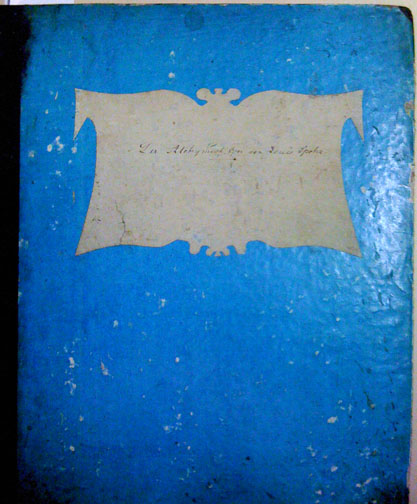 Der Alchymist. Oper von Louis Spohr